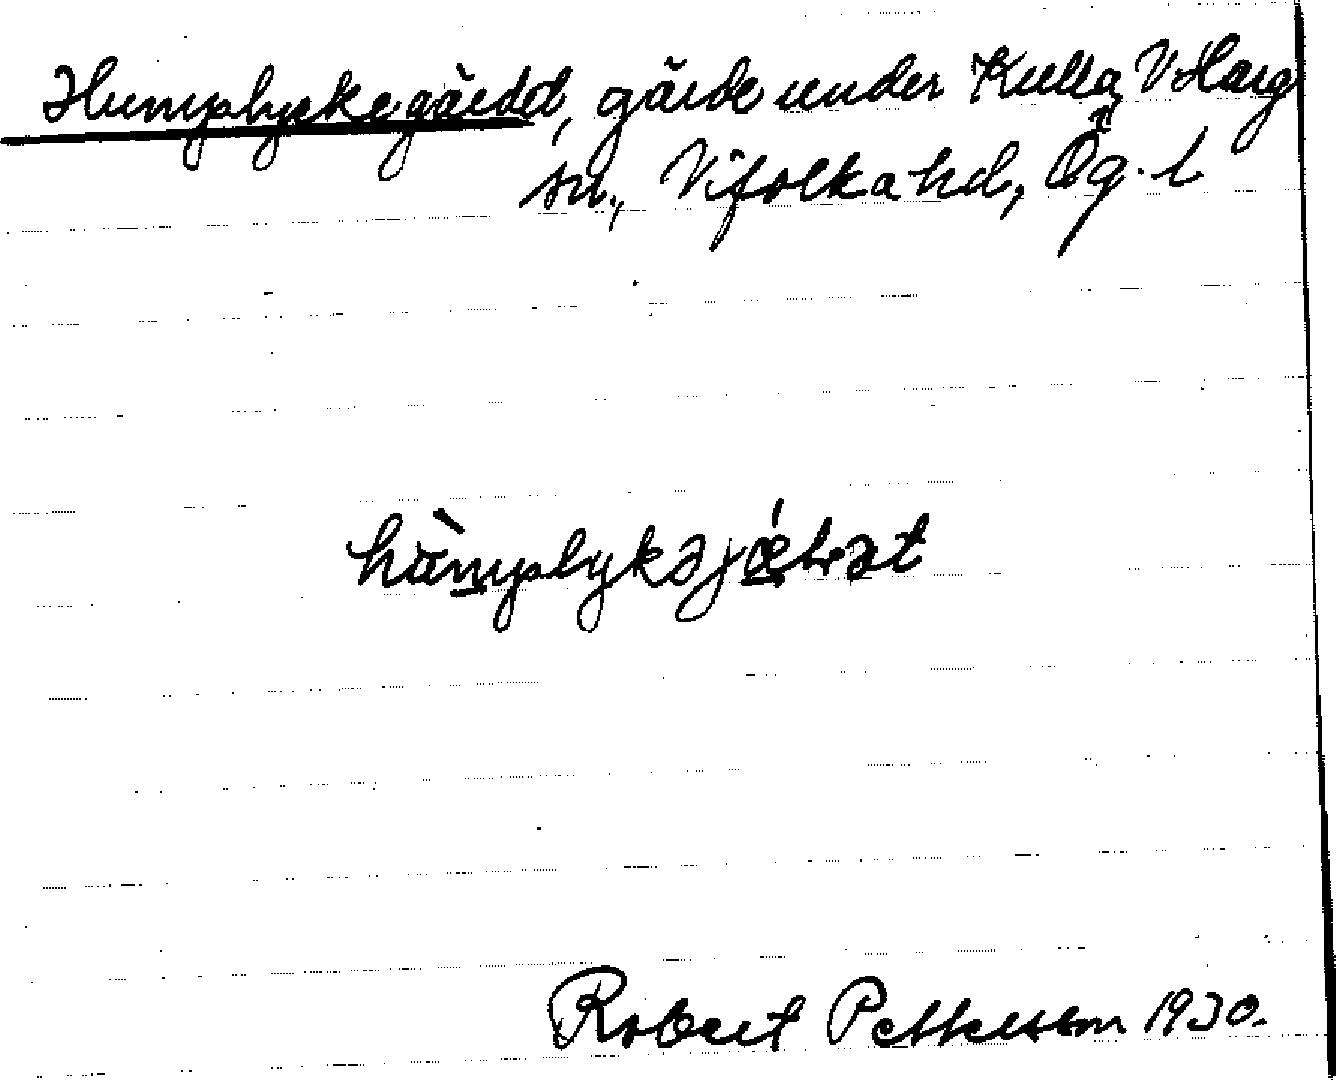 Humplyckegärdet, gärde under Kulla, V Harg
sn., Vifolka hd, Ög. l
hùmplykəjǽɽət
Robert Pettersson 1930.